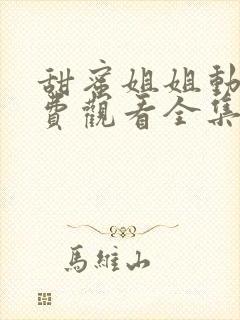 甜蜜姐姐動
費觀看全集
馬維山